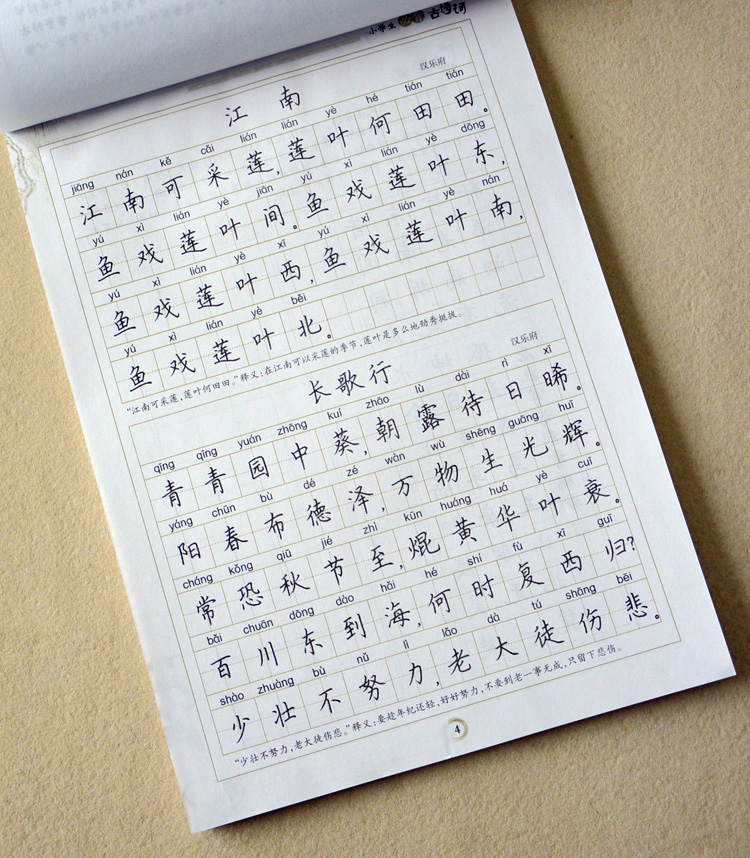 小学生必背古诗词
江南
汉乐府
jiāng nán kě cǎi lián lián yè hé tián tián
江南可采莲，莲叶何田田。
yú xì lián yè jiān yú xì lián yè dōng
鱼戏莲叶间。鱼戏莲叶东，
yú xì lián yè xī yú xì lián yè nán
鱼戏莲叶西，鱼戏莲叶南，
yú xì lián yè běi
鱼戏莲叶北。
“江南可采莲，莲叶何田田。”释义：在江南可以采莲的季节，莲叶是多么地劲秀挺拔。
长歌行
汉乐府
qīng qīng yuán zhōng kuí zhāo lù dài rì xī
青青园中葵，朝露待日晞。
yáng chūn bù dé zé wàn wù shēng guāng huī
阳春布德泽，万物生光辉。
cháng kǒng qiū jié zhì kūn huáng huá yè cuī
常恐秋节至，焜黄华叶衰。
bǎi chuān dōng dào hǎi hé shí fù xī guī
百川东到海，何时复西归？
shào zhuàng bù nǔ lì lǎo dà tú shāng bēi
少壮不努力，老大徒伤悲。
“少壮不努力，老大徒伤悲。”释义：要趁年纪还轻，好好努力，不要到老一事无成，只留下悲伤。
4